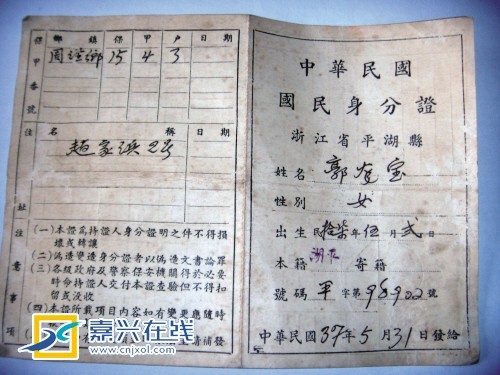 保甲番號 鄉鎮 保 甲 戶 日期
15 4 3
住址 名稱 日期
趙家浜 28
注意事項
(一)本證爲持證人身分證明之件不得損
壞或轉讓
(二)偽造變造身分證者以偽造文書論罪
(三)各級政府及警察保安機關得於必要
時令持證人交付本證查驗但不得扣
留或沒收
(四)本證所載項目內容如有變更應隨時
請補發
中華民國
國民身分證
浙江省平湖縣
姓名 郭 宝
性別 女
出生民拾柒年伍月貳日
本籍 寄籍
號碼 平字第98922號
中華民國37年5月31日發給
嘉兴在线
www.cnjxol.com